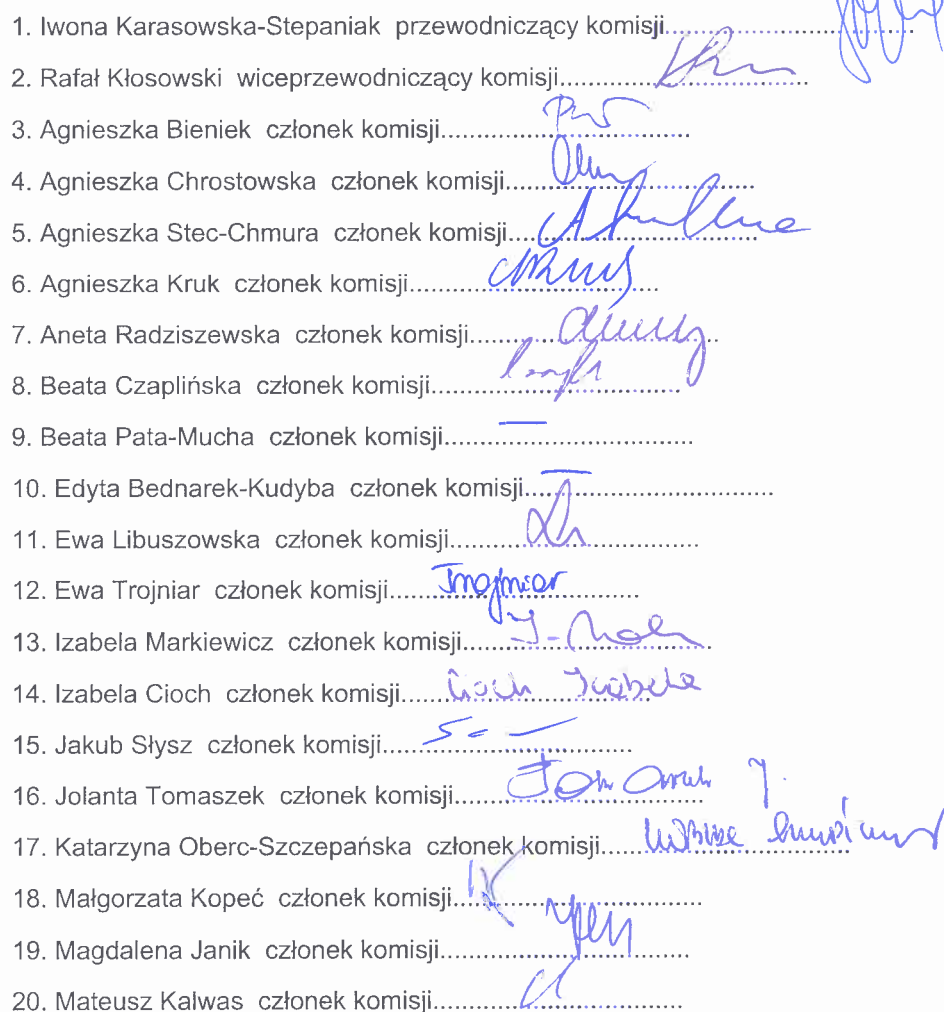 1. Iwona Karasowska-Stepaniak przewodniczący komisji
2. Rafał Kłosowski wiceprzewodniczący komisji
3. Agnieszka Bieniek członek komisji
4. Agnieszka Chrostowska członek komisji
5. Agnieszka Stec-Chmura członek komisji
6. Agnieszka Kruk członek komisji
7. Aneta Radziszewska członek komisji
8. Beata Czaplińska członek komisji
9. Beata Pata-Mucha członek komisji
10. Edyta Bednarek-Kudyba członek komisji
11. Ewa Libuszowska członek komisji
12. Ewa Trojniar członek komisji Trojniar
13. Izabela Markiewicz członek komisji
14. Izabela Cioch członek komisji Cioch Izabela
15. Jakub Słysz członek komisji
16. Jolanta Tomaszek członek komisji
17. Katarzyna Oberc-Szczepańska członek komisji
18. Małgorzata Kopeć członek komisji
19. Magdalena Janik członek komisji
20. Mateusz Kalwas członek komisji